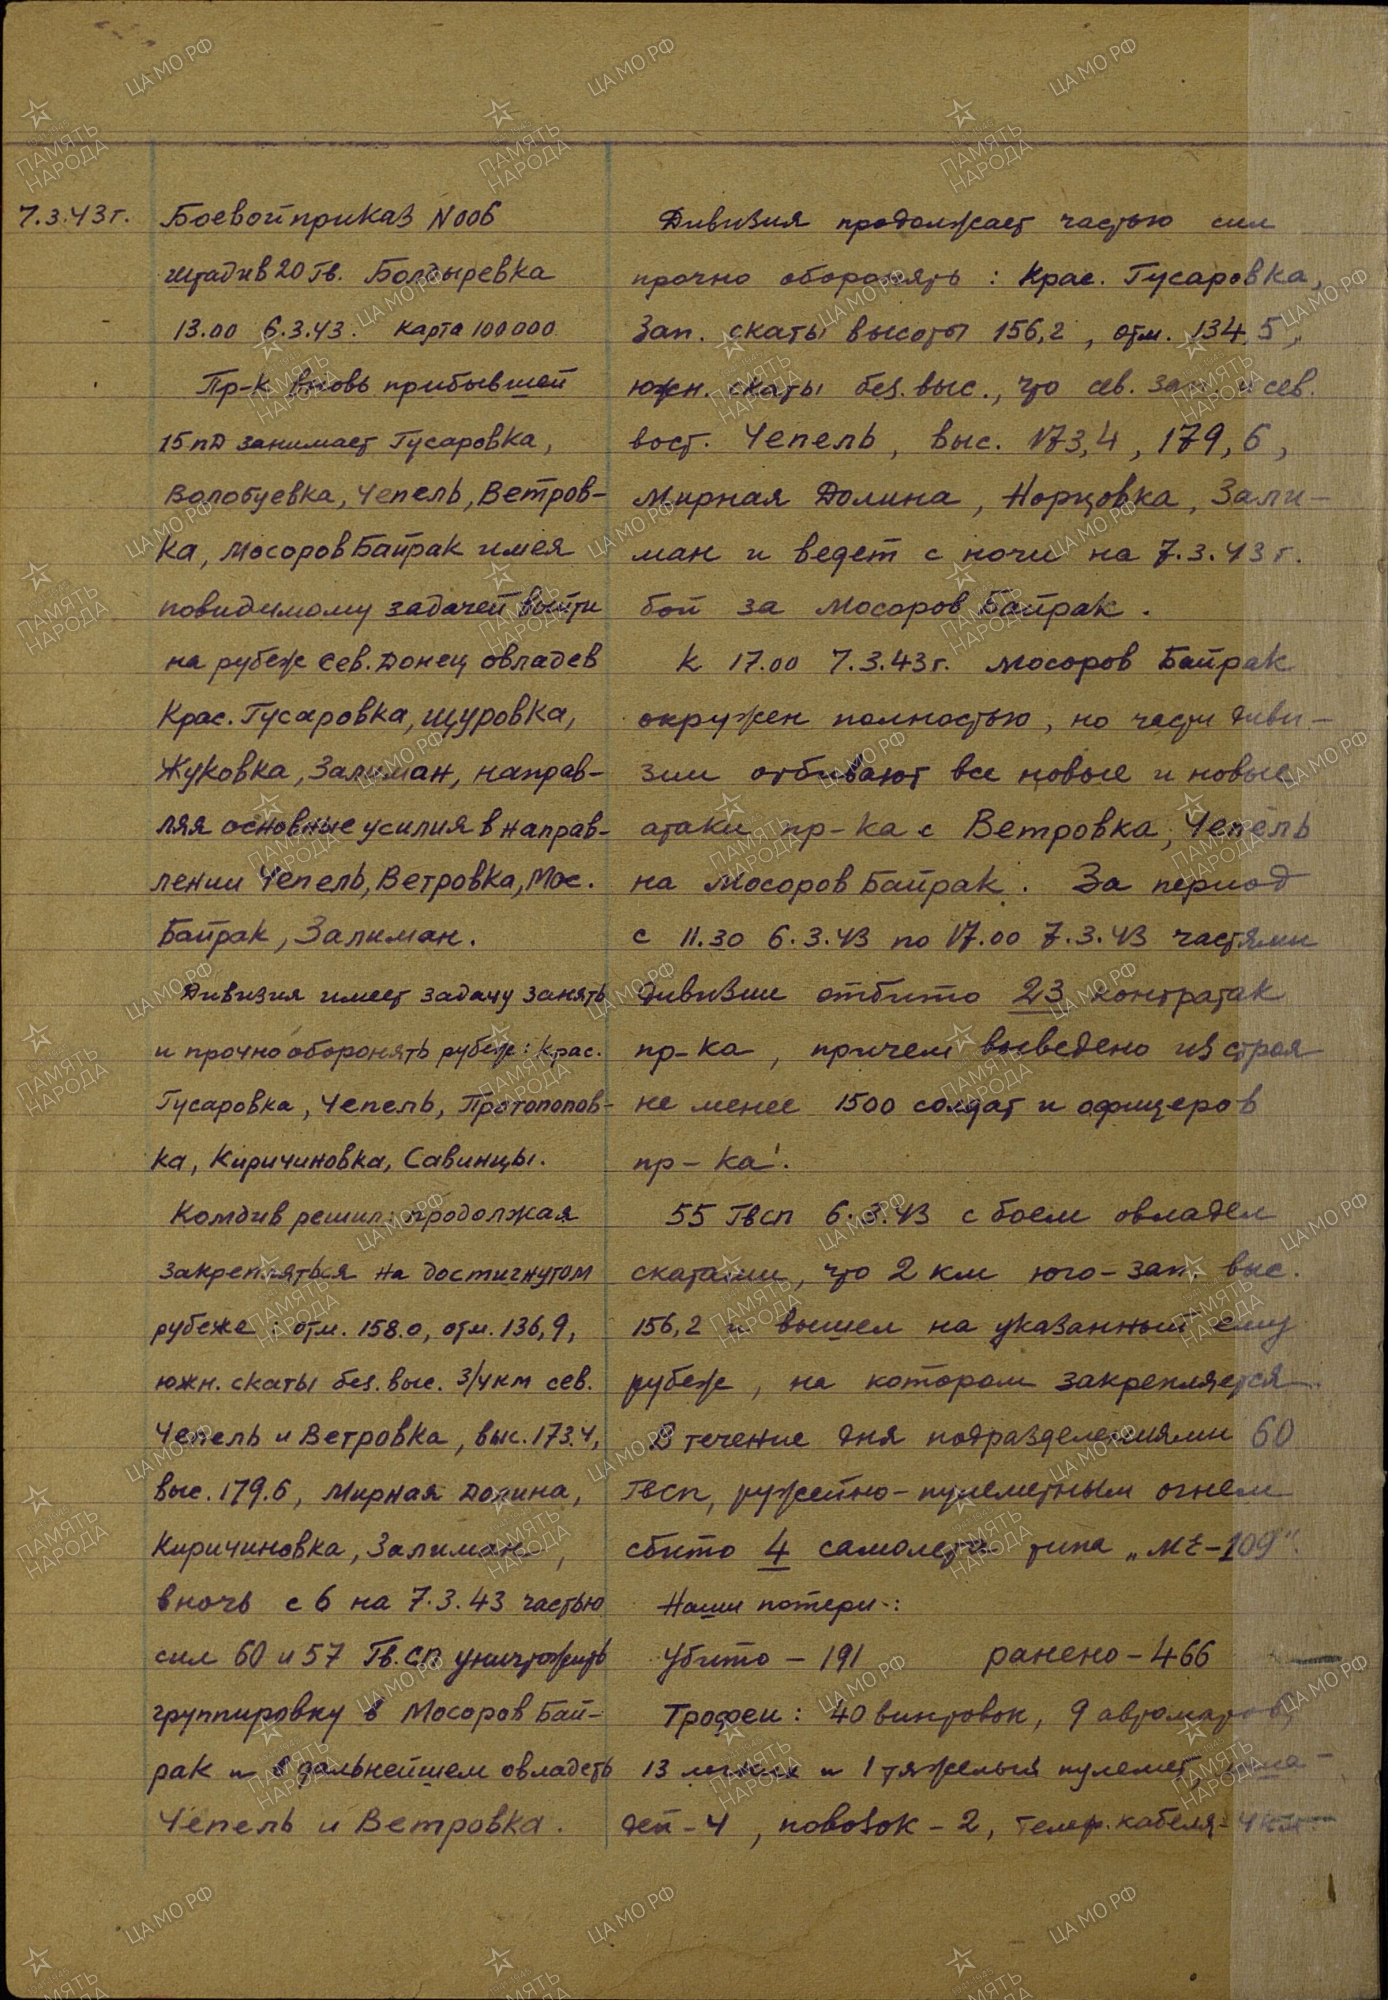 7.3.43г.
Боевой приказ №006
штадив 20 Гв. Болдыревка
13.00 6.3.43. карта 100000
Пр-к вновь прибывшей
15 пд занимает Гусаровка,
Волобуевка, Чепель, Ветров-
ка, Мосоров Байрак имея
повидимому задачей выйти
на рубеж Сев. Донец овладев
Крас. Гусаровка, Щуровка,
Жуковка, Залиман, направ-
ляя основные усилия в направ-
лении Чепель, Ветровка, Мос.
Байрак, Залиман.
Дивизия имеет задачу занять
и прочно оборонять рубеж: Крас.
Гусаровка, Чепель, Протопопов-
ка, Киричиновка, Савинцы.
Комдив решил: продолжая
закрепляться на достигнутом
рубеже: отм. 158.0, отм. 136,9,
южн. скаты без. выс. 3/4 км сев.
Чепель и Ветровка, выс. 173.4,
выс. 179.6, Мирная Долина,
Киричиновка, Залиман,
в ночь с 6 на 7.3.43 частью
сил 60 и 57 Гв.СП уничтожить
группировку в Мосоров Бай-
рак и в дальнейшем овладеть
Чепель и Ветровка.
Дивизия продолжает частью сил
прочно оборонять: Крас. Гусаровка,
Зап. скаты высоты 156,2, отм. 134,5,
южн. скаты без. выс., что сев. зап. и сев.
вост. Чепель, выс. 173,4, 179,6,
Мирная Долина, Норцовка, Зали-
ман и ведет с ночи на 7.3.43г.
бой за Мосоров Байрак.
К 17.00 7.3.43г. Мосоров Байрак
окружен полностью, но части диви-
зии отбивают все новые и новые
атаки пр-ка с Ветровка, Чепель
на Мосоров Байрак. За период
с 11.30 6.3.43 по 17.00 7.3.43 частями
дивизии отбито 23 контратак
пр-ка, причем выведено из строя
не менее 1500 солдат и офицеров
пр-ка.
55 Гвсп 6.3.43 с боем овладел
скатами, что 2 км юго-зап. выс.
156,2 и вышел на указанный ему
рубеж, на котором закрепляется.
В течение дня подразделениями 60
Гвсп, ружейно-пулеметным огнем
сбито 4 самолета типа „МЕ-109".
Наши потери:
Убито - 191 ранено - 466
Трофеи: 40 винтовок, 9 автоматов,
13 легких и 1 тяжелый пулемет, лоша-
дей - 4, повозок - 2, телеф. кабеля - 4 км.